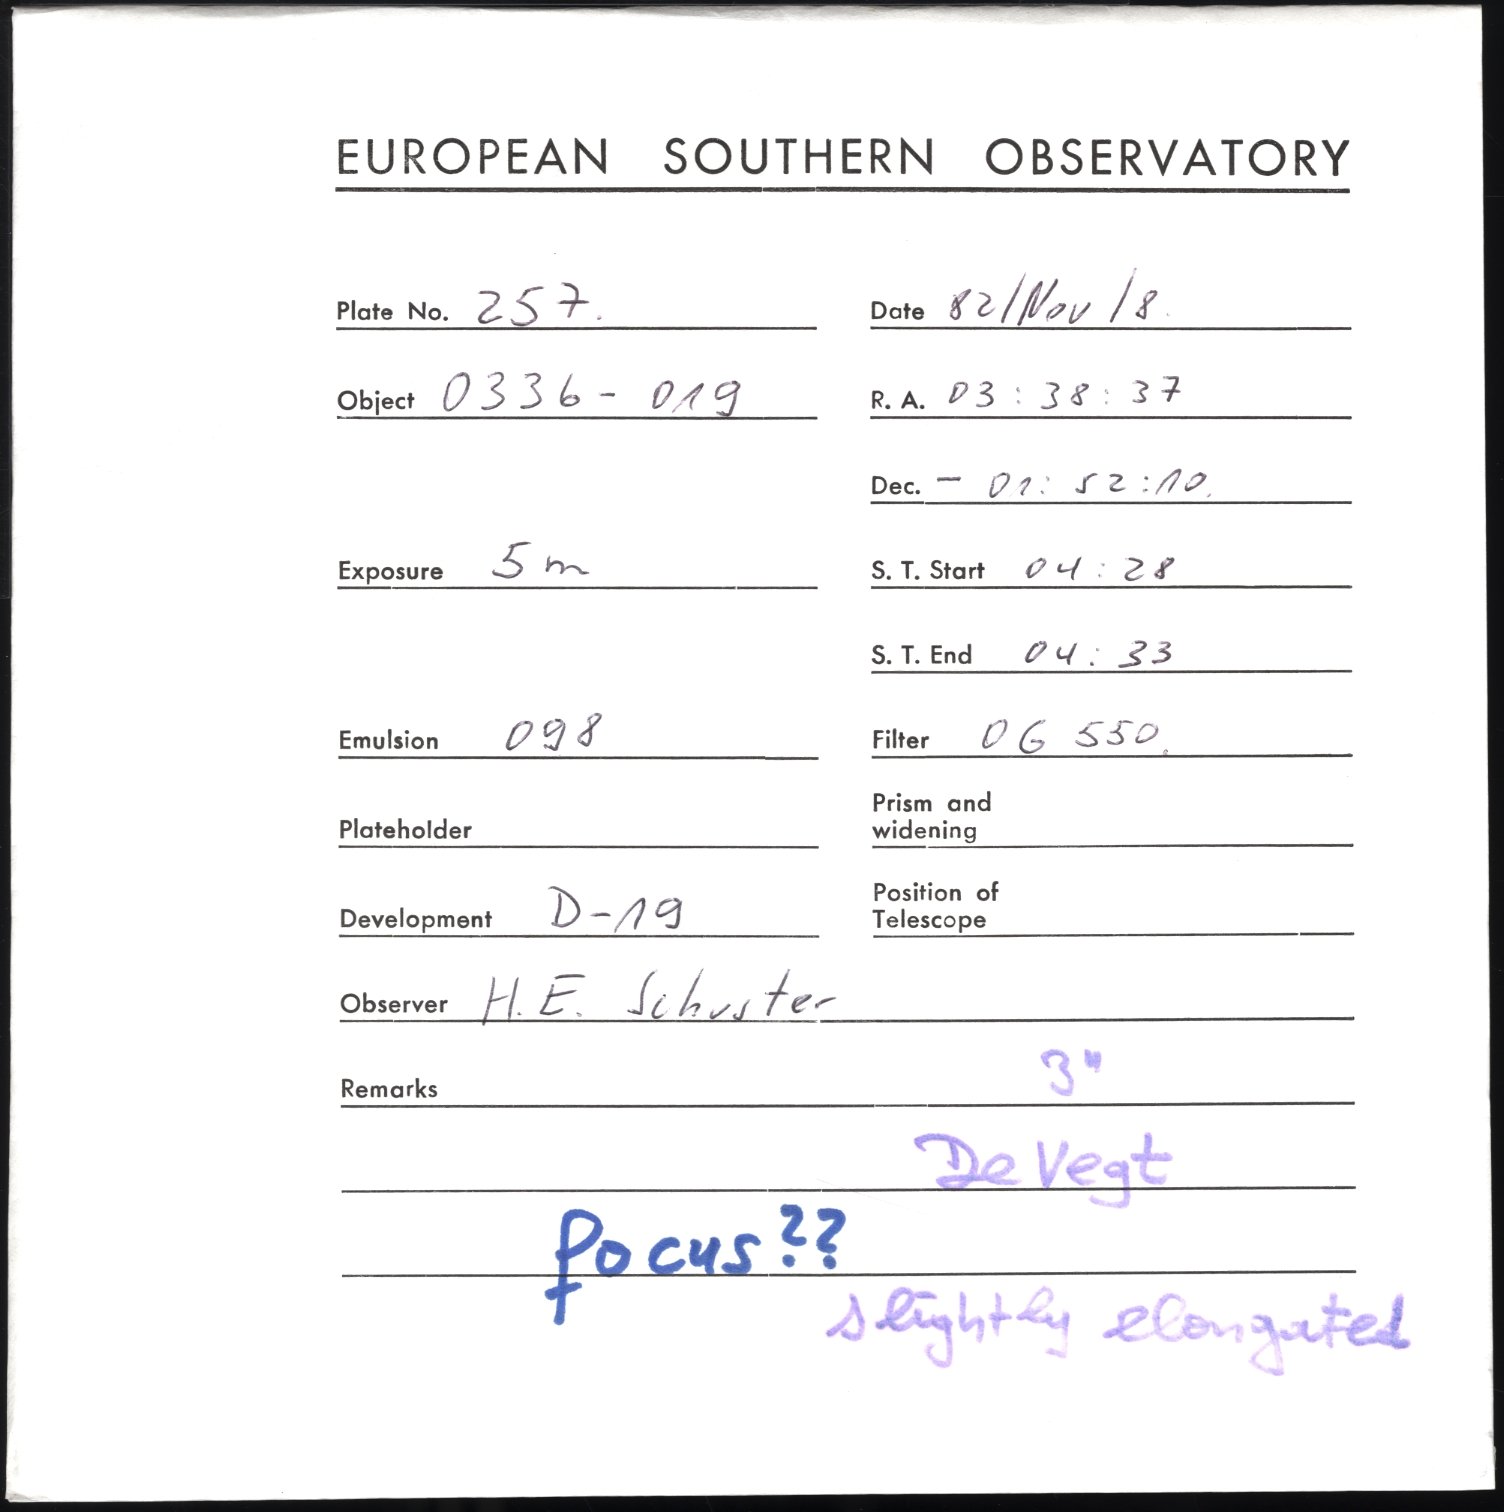 EUROPEAN SOUTHERN OBSERVATORY
Plate No. 257. Date 82/Nov/8.
Object 0336-019 R. A. 03:38:37
Dec. - 01:52:10.
Exposure 5m S. T. Start 04:28
S. T. End 04:33
Emulsion 098 Filter OG 550.
Plateholder Prism and
widening
Development D-19 Position of
Telescope
Observer H. E. Schuster
Remarks 3"
De Vegt
focus??
slightly elongated